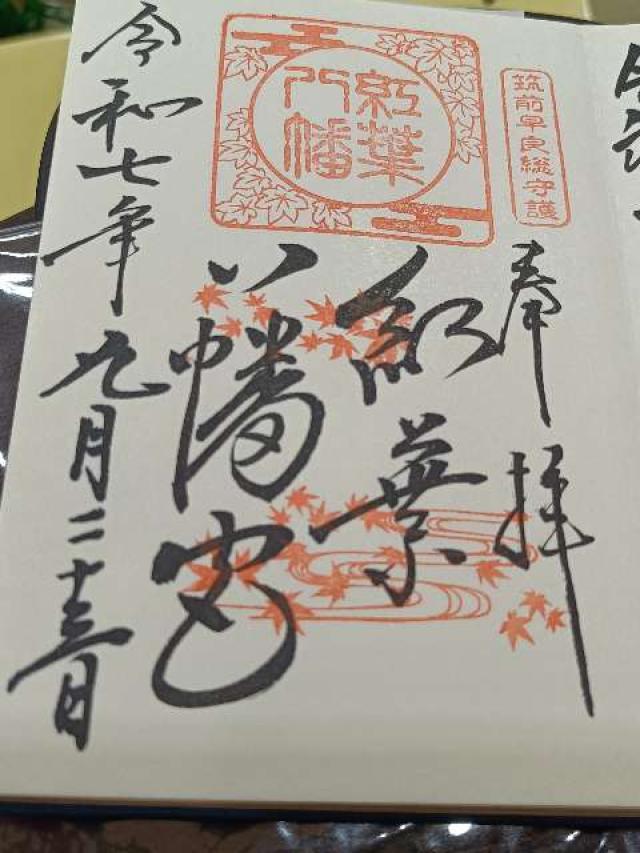 筑前早良総守護
奉拝
紅葉
八幡
紅葉
八幡宮
令和七年九月二十三日